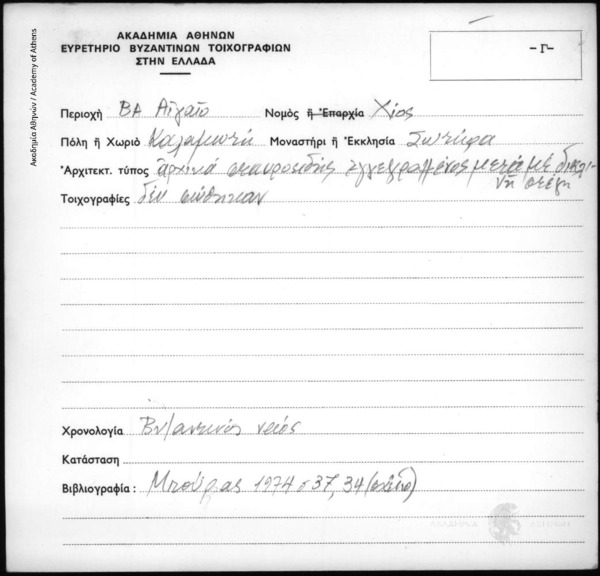 ΑΚΑΔΗΜΙΑ ΑΘΗΝΩΝ
ΕΥΡΕΤΗΡΙΟ ΒΥΖΑΝΤΙΝΩΝ ΤΟΙΧΟΓΡΑΦΙΩΝ
ΣΤΗΝ ΕΛΛΑΔΑ
-Γ-
Ακαδημία Αθηνών / Academy of Athens
Περιοχή ΒΑ Αἰγαῖο Νομὸς ἤ Ἐπαρχία Χίος
Πόλη ἤ Χωριὸ Καλαμωτή Μοναστήρι ἤ Ἐκκλησία Σωτήρα
Ἀρχιτεκτ. τύπος ἀρχικά σταυροειδής ἐγγεγραμμένος μετά μέ δικλι-
νῆ στέγη
Τοιχογραφίες δέν σώθηκαν
Χρονολογία Βυζαντινός ναός
Κατάσταση
Βιβλιογραφία : Μπούρας 1974 σ 37, 34 (σχέδιο)